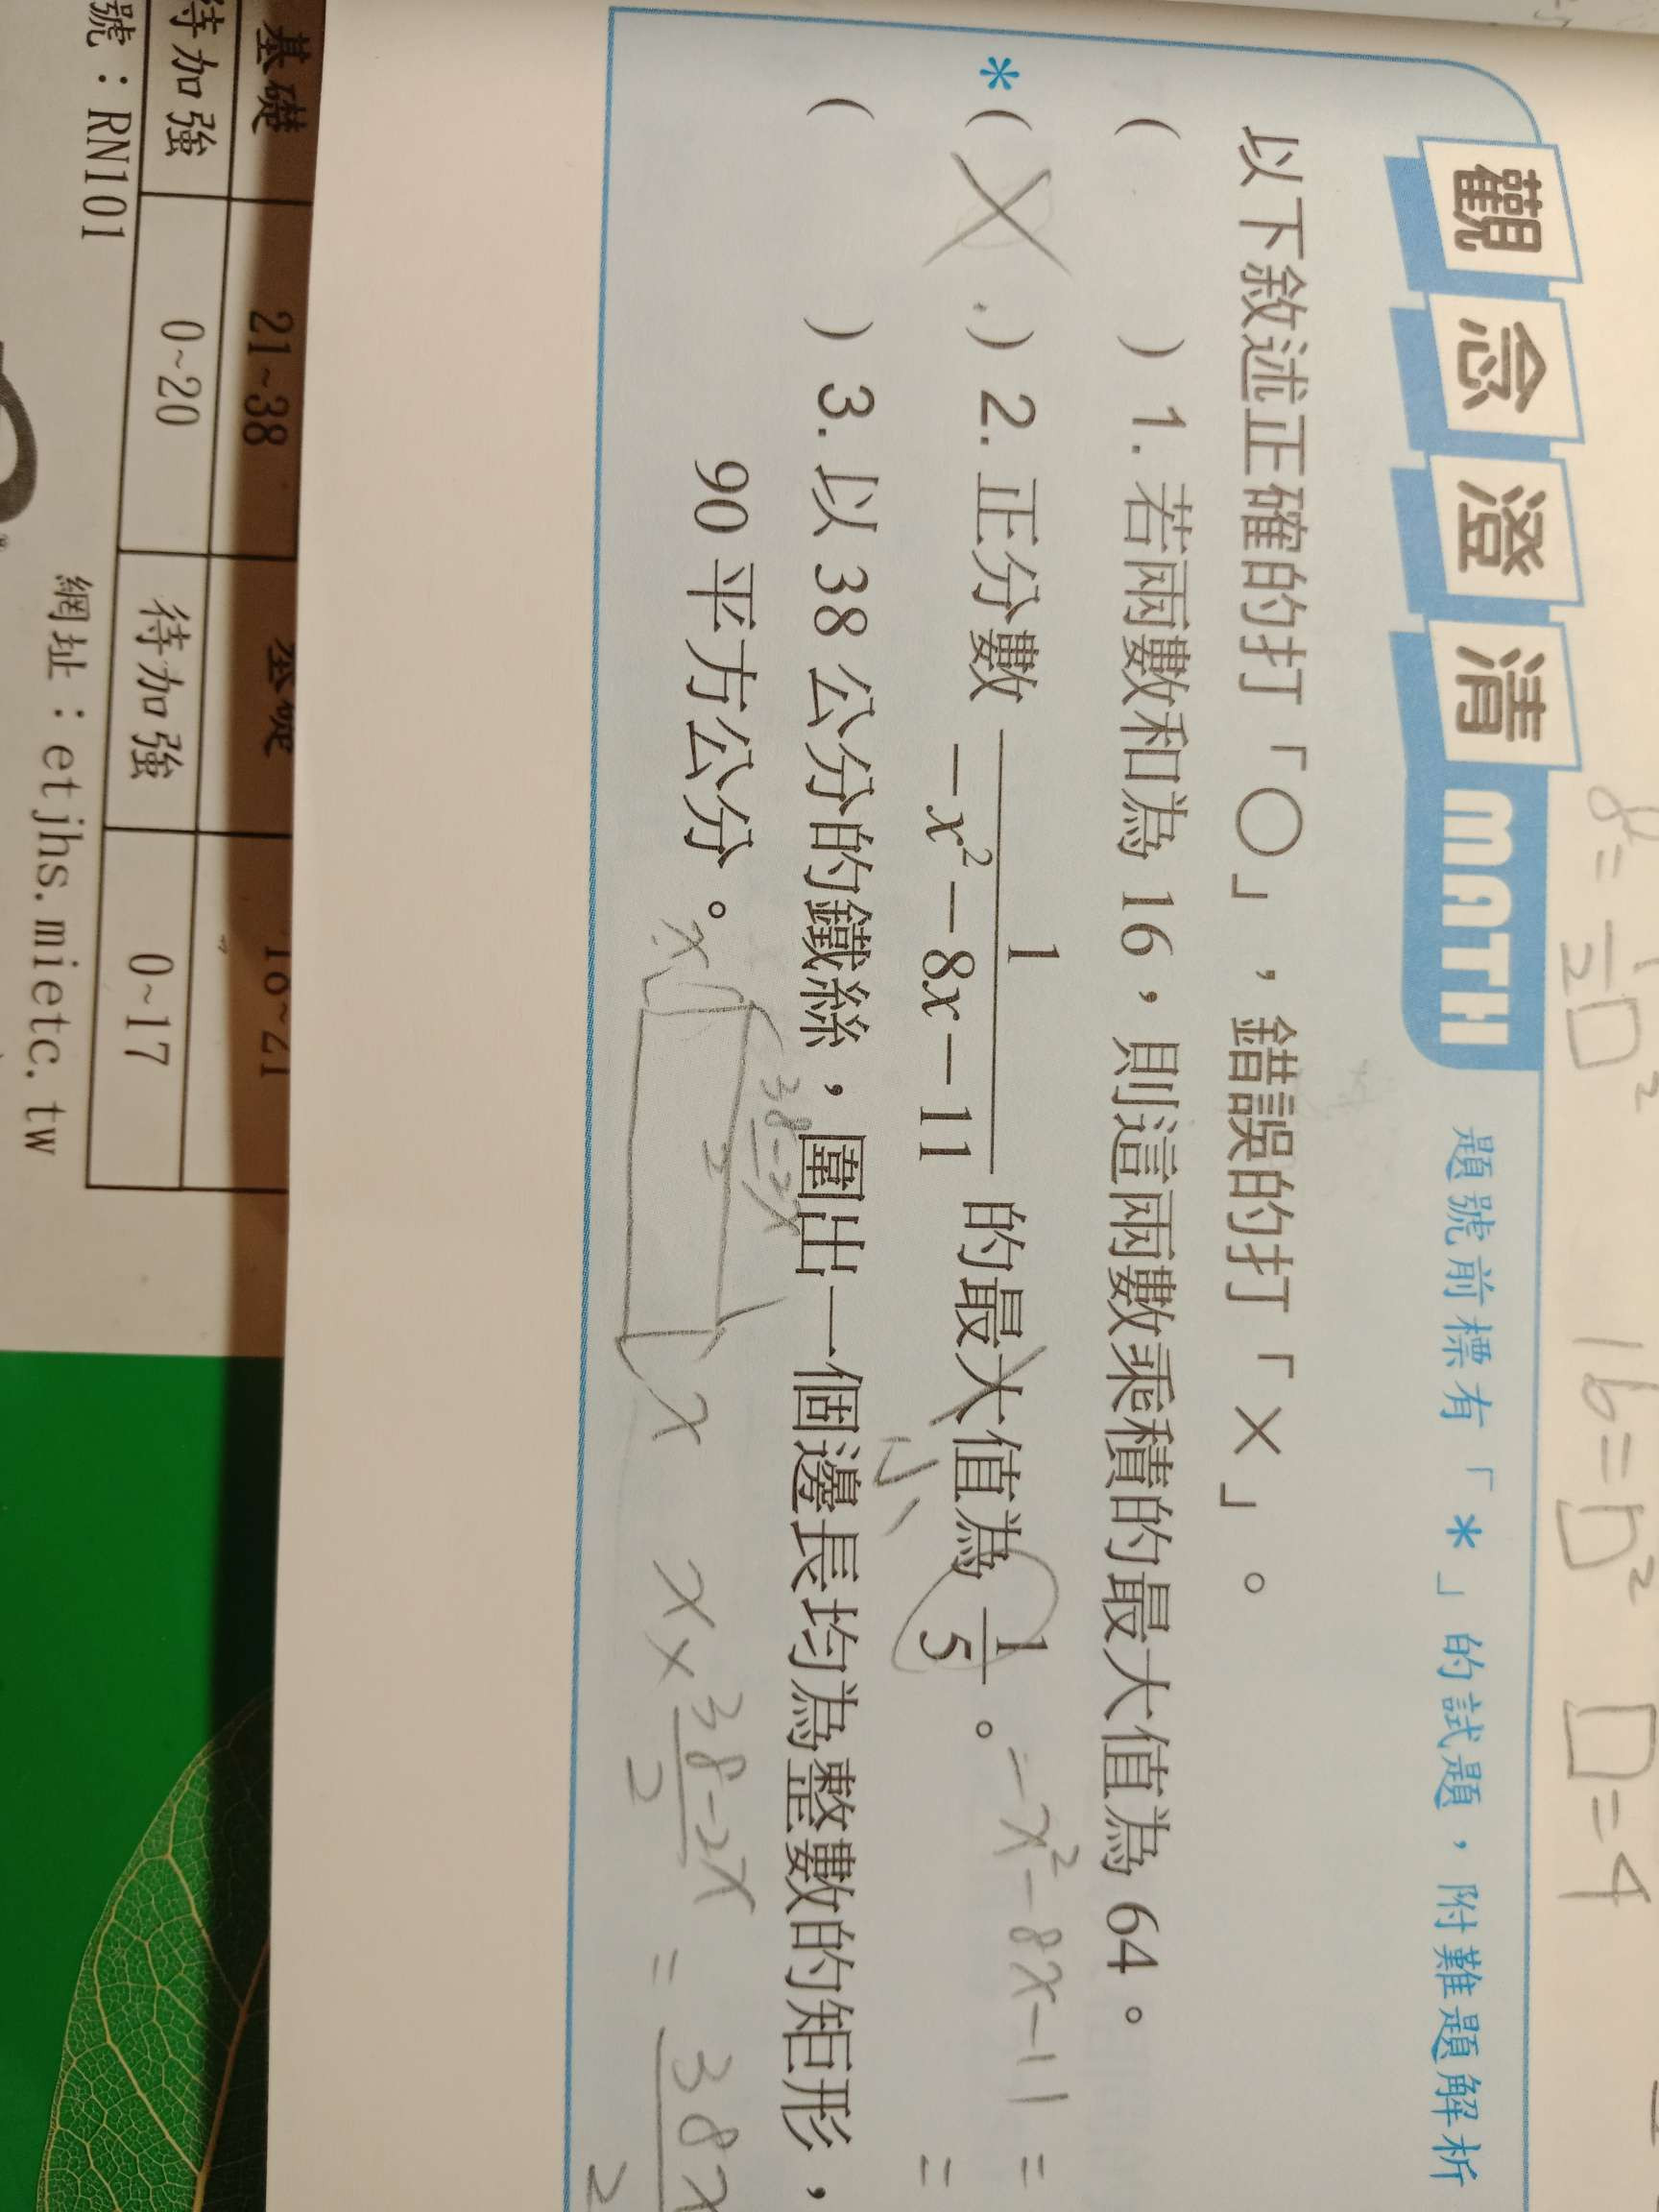 觀念澄清 MATH 題號前標有「*」的試題,附難題解析
以下敘述正確的打「○」,錯誤的打「×」。
( ) 1. 若兩數和為 16,則這兩數乘積的最大值為 64。
*( X ) 2. 正分數 1/(-x²-8x-11) 的最大值為 1/5。 -x²-8x-11 =
小 =
( ) 3. 以 38 公分的鐵絲,圍出一個邊長均為整數的矩形,
90 平方公分。
x (38-2x)/2 x x × (38-2x)/2 = 38x
2
8=1/2□² 16=□² □=4
基礎 21~38 基礎 18~21
待加強 0~20 待加強 0~17
號:RN101 網址:etjhs.mietc.tw